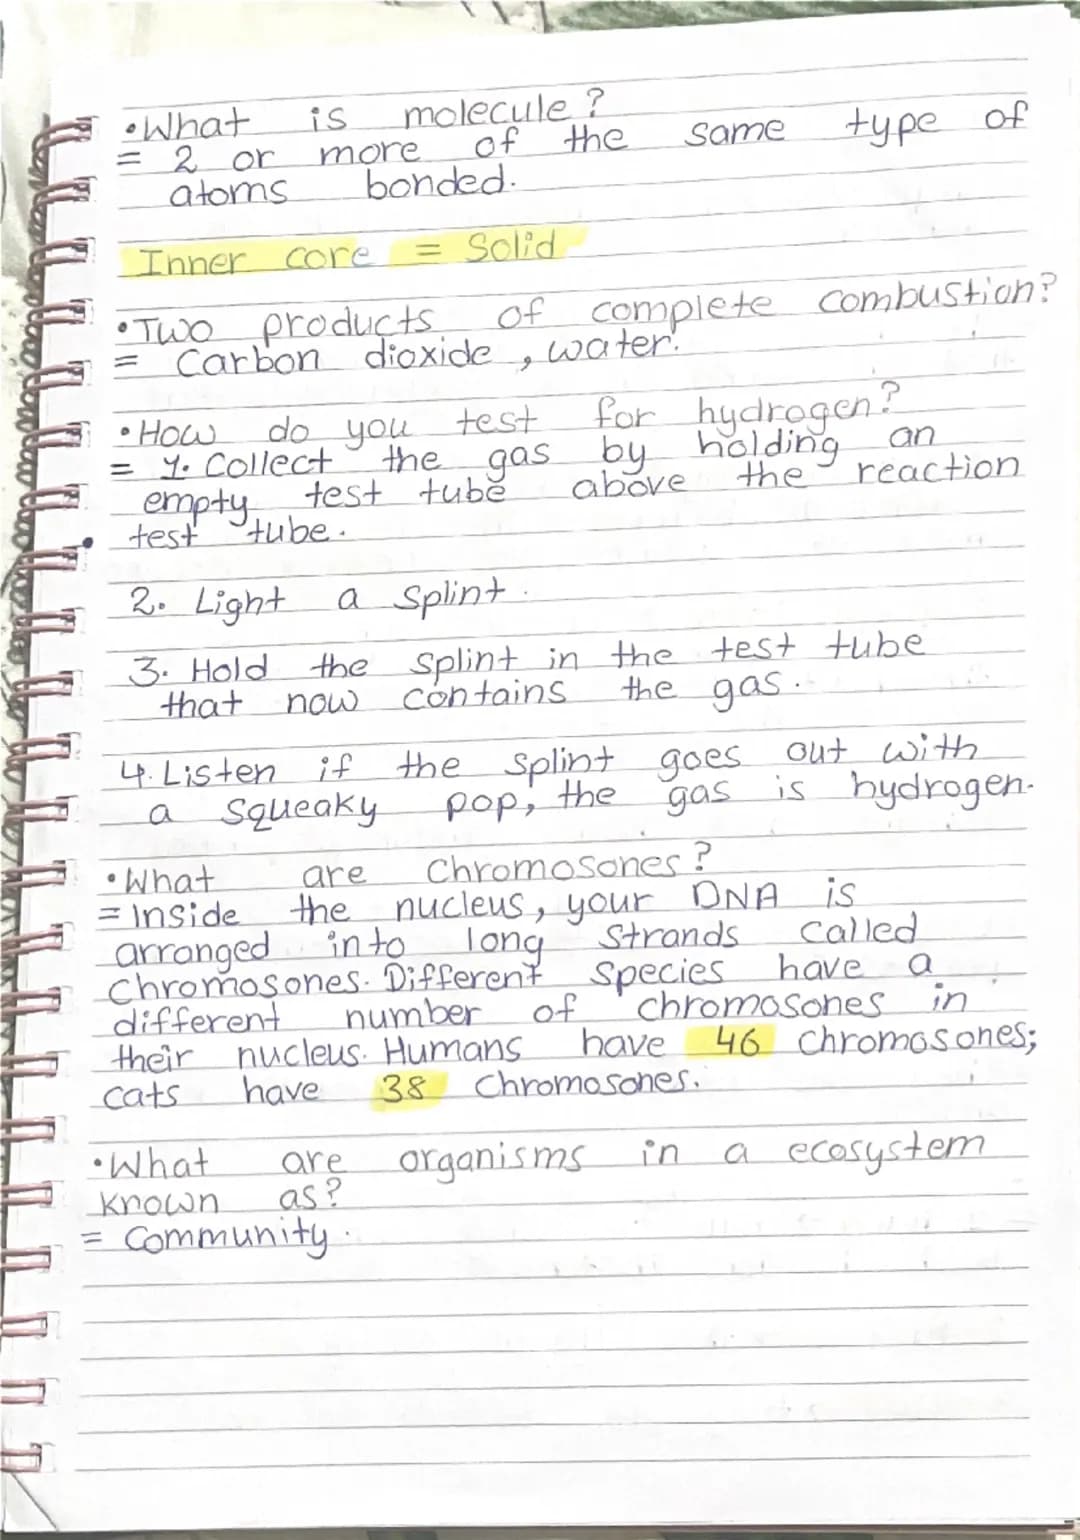 •What is molecule?
= 2 or more of the same type of
atoms bonded.
Inner core = Solid
•Two products of complete combustion?
= Carbon dioxide, water.
•How do you test for hydrogen?
= 1. Collect the gas by holding an
empty test tube above the reaction
test tube.
2. Light a splint.
3. Hold the splint in the test tube
that now contains the gas.
4. Listen if the splint goes out with
a squeaky pop, the gas is hydrogen.
•What are Chromosones?
= Inside the nucleus, your DNA is
arranged into long strands called
chromosones. Different species have a
different number of chromosones in
their nucleus. Humans have 46 chromosones;
cats have 38 chromosones.
•What are organisms in a ecosystem
known as?
= Community.